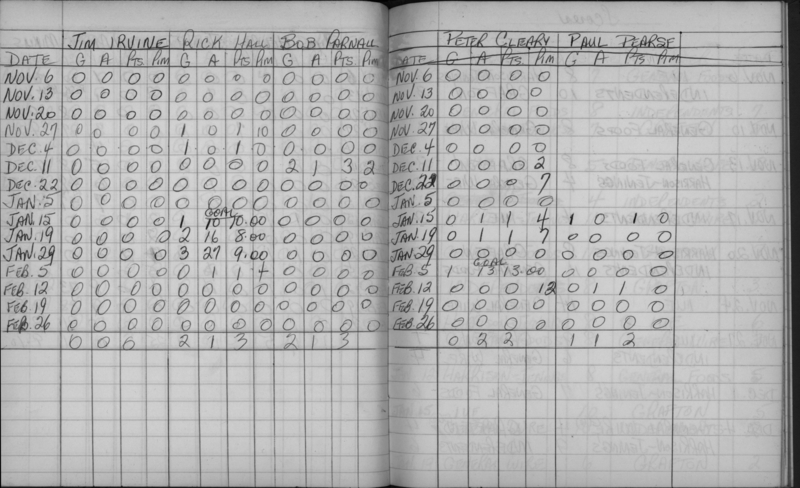 JIM IRVINE RICK HALL BOB PARNALL
DATE G A Pts Pim G A Pts Pim G A Pts Pim
NOV. 6 0 0 0 0 0 0 0 0 0 0 0 0
NOV. 13 0 0 0 0 0 0 0 0 0 0 0 0
NOV. 20 0 0 0 0 0 0 0 0 0 0 0 0
NOV. 27 0 0 0 0 1 0 1 10 0 0 0 0
DEC. 4 0 0 0 0 1 0 1 0 0 0 0 0
DEC. 11 0 0 0 0 0 0 0 0 2 1 3 2
DEC. 22 0 0 0 0 0 0 0 0 0 0 0 0
JAN. 5 0 0 0 0 0 0 0 0 0 0 0 0
GOAL
JAN. 15 0 0 0 0 1 10 10.00 0 0 0 0
JAN. 19 0 0 0 0 2 16 8.00 0 0 0 0
JAN. 29 0 0 0 0 3 27 9.00 0 0 0 0
FEB. 5 0 0 0 0 0 1 1 4 0 0 0 0
FEB. 12 0 0 0 0 0 0 0 0 0 0 0 0
FEB. 19 0 0 0 0 0 0 0 0 0 0 0 0
FEB. 26 0 0 0 0 0 0 0 0 0 0 0 0
0 0 0 2 1 3 2 1 3
PETER CLEARY PAUL PEARSE
DATE G A Pts Pim G A Pts Pim
NOV. 6 0 0 0 0
NOV. 13 0 0 0 0
NOV. 20 0 0 0 0
NOV. 27 0 0 0 0
DEC. 4 0 0 0 0
DEC. 11 0 0 0 2
DEC. 22 0 0 0 7
JAN. 5 0 0 0 0
JAN. 15 0 1 1 4 1 0 1 0
JAN. 19 0 1 1 7 0 0 0 0
JAN. 29 0 0 0 0 0 0 0 0
GOAL
FEB. 5 13 13.00 0 0 0 0
FEB. 12 0 0 0 12 0 1 1 0
FEB. 19 0 0 0 0 0 0 0 0
FEB. 26 0 0 0 0 0 0 0 0
0 2 2 1 1 2